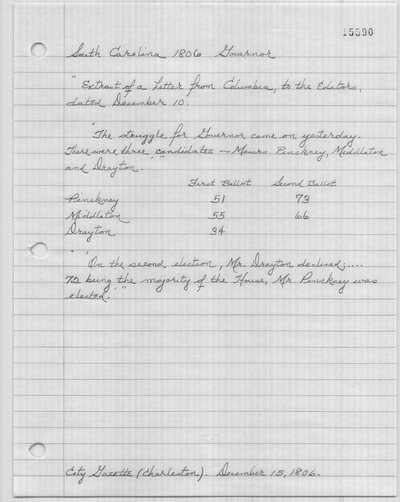 15590
South Carolina 1806 Governor
"Extract of a Letter from Columbia, to the Editors,
dated December 10.
"The struggle for Governor came on yesterday.
There were three candidates — Messrs. Pinckney, Middleton
and Drayton."
First Ballot Second Ballot
Pinckney 51 73
Middleton 55 66
Drayton 34
"On the second election, Mr. Drayton declined;....
72 being the majority of the House, Mr. Pinckney was
elected."
City Gazette (Charleston). December 15, 1806.